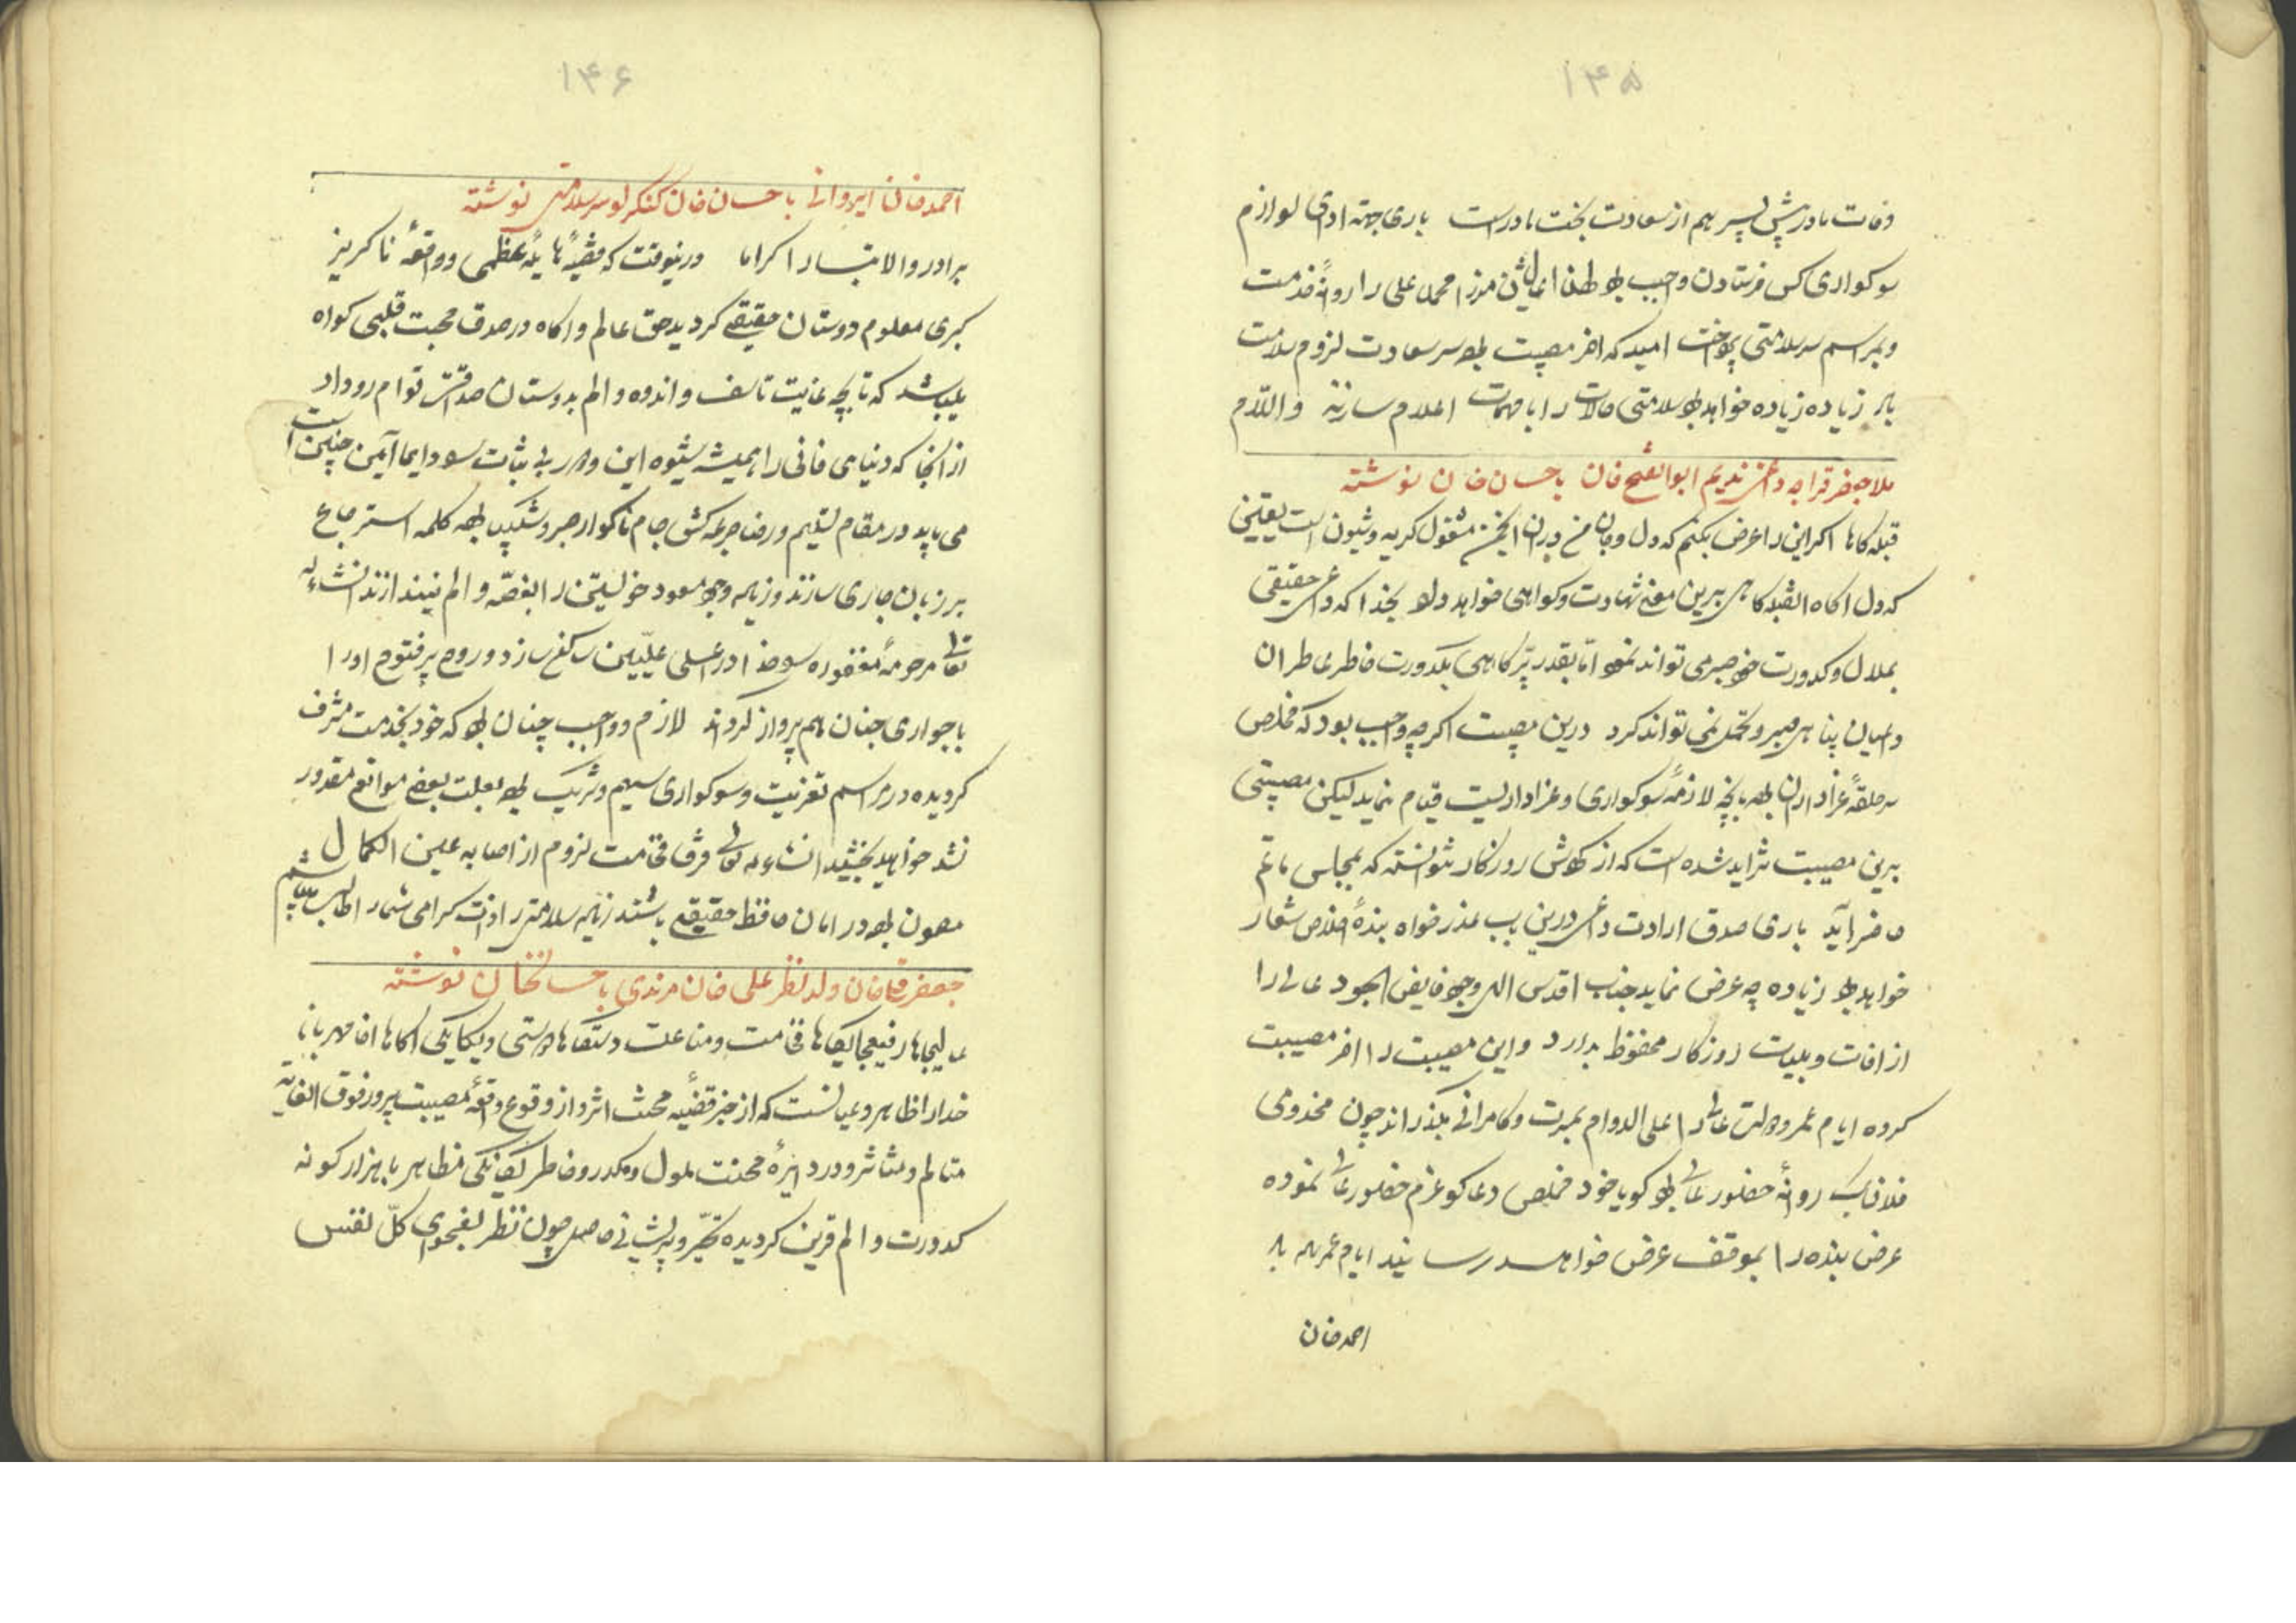 ۱۴۵
وفات مادر پیش پسر هم از سعادت بخت مادر است باری جهته ادای لوازم
سوکواری کس فرستادن واجب میرزا محمد علی را روانهٔ خدمت
و بمراسم سرسلامتی امید که اخر مصیبت سر سعادت لزوم سلامت
باد زیاده زیاده خواهد سلامتی حالات را با مهمات اعلام سازند والسلام
ملا جعفر قراجه داغی ندیم ابوالفتح خان باحسان خان نوشته
قبله کاها اکر این را عرض بکنم که دل و جان من در ان انجمن مشغول کریه و شیون است یقین
که دل اکاه ان قبله کاهی برین معنی شهادت و کواهی خواهد داد بخدا که داعی حقیقی
بملال و کدورت خود صبر می تواند نمود اما بقدر پر کاهی بکدورت خاطر عاطر ان
پناهی صبر و تحمل نمی تواند کرد درین مصیبت اکر چه واجب بود که مخلص
سر حلقهٔ عزاداران بوده بانچه لازمهٔ سوکواری و عزاداریست قیام نماید لیکن مصیبتی
برین مصیبت شده است که از روزکار نتوانسته که بمجلس ماتم
حاضر آید باری صدق ارادت داعی درین باب عذر خواه بندهٔ اخلاص شعار
خواهد بود زیاده چه عرض نماید جناب اقدس الهی وجود فایض الجود عالی را
از افات و بلیات روزکار محفوظ بدارد و این مصیبت را اخر مصیبت
کرده ایام عمر و دولت عالی را علی الدوام بمسرت و کامرانی بکذراند چون مخدومی
فلان بیک روانهٔ حضور عالی بود کویا خود مخلص دعا کو عزم حضور عالی نموده
عرض بنده را بموقف عرض خواهد رسانید ایام عمر باد
احمد خان
۱۴۶
احمد خان ایروانی باحسان خان کنکرلو سر سلامتی نوشته
برادر والاتبار اکراما درینوقت که قضیهٔ هایلهٔ عظمی و واقعهٔ ناکریز
کبری معلوم دوستان حقیقی کردید حق عالم و اکاه و در صدق محبت قلبی کواه
میباشد که تا بچه غایت تاسف و اندوه و الم بدوستان صداقت توام روداد
از انجا که دنیای فانی را همیشه شیوه این و دهر بی ثبات را دایما آیین چنین است
می باید در مقام تسلیم و رضا جرعه کش جام ناکوار صبر و شکیب بوده کلمه استرجاع
بر زبان جاری سازند و زیاده وجود مسعود خویشتن را بغصه و الم نیندازند انشاءالله
تعالی مرحومهٔ مغفوره را خدا در اعلی علیین ساکن سازد و روح پر فتوح او را
با جواری جنان هم پرواز کرداند لازم و واجب چنان بود که خود بخدمت مشرف
کردیده در مراسم تعزیت و سوکواری سهیم و شریک بود بعلت بعضی موانع مقدور
نشد خواهید بخشید انشاءالله تعالی لزوم از اصابه عین الکمال
مصون بوده در امان حافظ حقیقی باشند زیاده سلامتی ذات کرامی شما را طالب میباشم
جعفر قلی خان ولد نظر علی خان مرندی باحسانخان نوشته
عالیجاها رفیع جایکاها فخامت و مناعت دستکاها دوستی و یکانکی اکاها اقا مهربانا
خدا را ظاهر و عیانست که از خبر قضیه اثر و از وقوع واقعهٔ مصیبت پرور فوق الغایه
متالم و متاثر و در دایرهٔ محنت ملول و مکدر و خاطر یکانکی مظاهر با هزار کونه
کدورت و الم قرین کردیده تحیر و پریشانی حاصل چون نظر بفحوای کل نفس